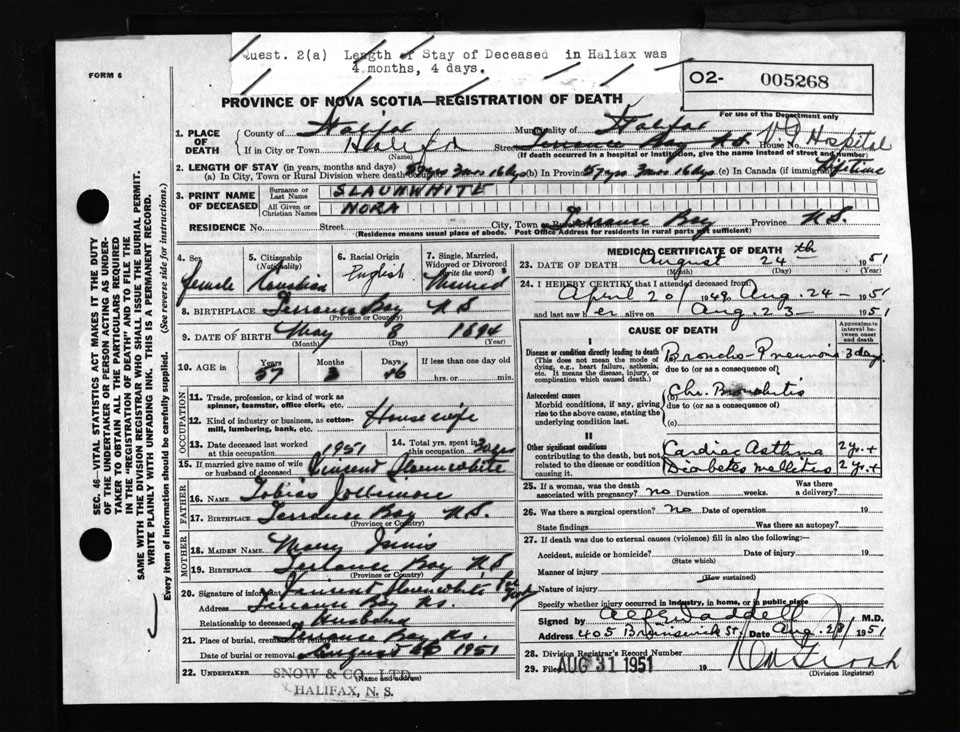 Quest. 2(a) Length of Stay of Deceased in Haliax was
4 months, 4 days.
FORM 6
O2- 005268
PROVINCE OF NOVA SCOTIA—REGISTRATION OF DEATH
For use of the Department only
1. PLACE OF DEATH
County of Halifax Municipality of Halifax
If in City or Town Halifax Street Terrance Bay N.S. House No. V.G. Hospital
(Name) (If death occurred in a hospital or institution, give the name instead of street and number)
2. LENGTH OF STAY (in years, months and days)
(a) In City, Town or Rural Division where death occurred 57yrs 3mos 16dys (b) In Province 57yrs 3mos 16dys (c) In Canada (if immigrant) Lifetime
3. PRINT NAME OF DECEASED
Surname or Last Name SLAUNWHITE
All Given or Christian Names NORA
RESIDENCE No. Street City, Town or Rural Division Terrance Bay Province N.S.
(Residence means usual place of abode. Post Office Address for residents in rural parts not sufficient)
SEC. 46—VITAL STATISTICS ACT MAKES IT THE DUTY
OF THE UNDERTAKER OR PERSON ACTING AS UNDER-
TAKER TO OBTAIN ALL THE PARTICULARS REQUIRED
IN THE "REGISTRATION OF DEATH" AND TO FILE THE
SAME WITH THE DIVISION REGISTRAR WHO SHALL ISSUE THE BURIAL PERMIT.
WRITE PLAINLY WITH UNFADING INK. THIS IS A PERMANENT RECORD.
Every item of information should be carefully supplied. (See reverse side for instructions.)
4. Sex Female
5. Citizenship (Nationality) Canadian
6. Racial Origin English
7. Single, Married, Widowed or Divorced (write the word) Married
8. BIRTHPLACE Terrance Bay N.S.
(Province or Country)
9. DATE OF BIRTH May 8 1894
(Month) (Day) (Year)
10. AGE in Years 57 Months 3 Days 16 If less than one day old hrs. or min.
OCCUPATION
11. Trade, profession, or kind of work as spinner, teamster, office clerk, etc.
12. Kind of industry or business, as cotton-mill, lumbering, bank, etc. Housewife
13. Date deceased last worked at this occupation 1951
14. Total yrs. spent in this occupation
15. If married give name of wife or husband of deceased Vincent Slaunwhite
FATHER
16. NAME Tobias Jollimore
17. BIRTHPLACE Terrance Bay N.S.
(Province or Country)
MOTHER
18. MAIDEN NAME Mary Innis
19. BIRTHPLACE Terrance Bay N.S.
(Province or Country)
20. Signature of informant Vincent Slaunwhite
Address Terrance Bay N.S.
Relationship to deceased Husband
21. Place of burial, cremation or removal Terrance Bay N.S.
Date of burial or removal August 26 1951
22. UNDERTAKER SNOW & CO. LTD.
(Name and address)
HALIFAX, N. S.
MEDICAL CERTIFICATE OF DEATH
23. DATE OF DEATH August 24th 1951
(Month) (Day) (Year)
24. I HEREBY CERTIFY that I attended deceased from:
April 20/1949 Aug. 24 1951
and last saw her alive on Aug. 23 1951
CAUSE OF DEATH
Approximate interval between onset and death
I
Disease or condition directly leading to death
(This does not mean the mode of dying, e.g., heart failure, asthenia, etc. It means the disease, injury, or complication which caused death.)
(a) Broncho-Pneumonia 3 days
due to (or as a consequence of)
Antecedent causes
Morbid conditions, if any, giving rise to the above cause, stating the underlying condition last.
(b) Chr. Bronchitis
due to (or as a consequence of)
(c)
II
Other significant conditions
contributing to the death, but not related to the disease or condition causing it.
Cardiac Asthma 2 yr. +
Diabetes mellitus 2 yr. +
25. If a woman, was the death associated with pregnancy? no Duration weeks. Was there a delivery?
26. Was there a surgical operation? no Date of operation 19
State findings Was there an autopsy?
27. If death was due to external causes (violence) fill in also the following:—
Accident, suicide or homicide? Date of injury 19
(State which)
Manner of injury
(How sustained)
Nature of injury
Specify whether injury occurred in industry, in home, or in public place
Signed by Waddell M.D.
Address 405 Brunswick St. Date Aug. 1951
28. Division Registrar's Record Number
29. Filed AUG 31 1951 19
(Division Registrar)